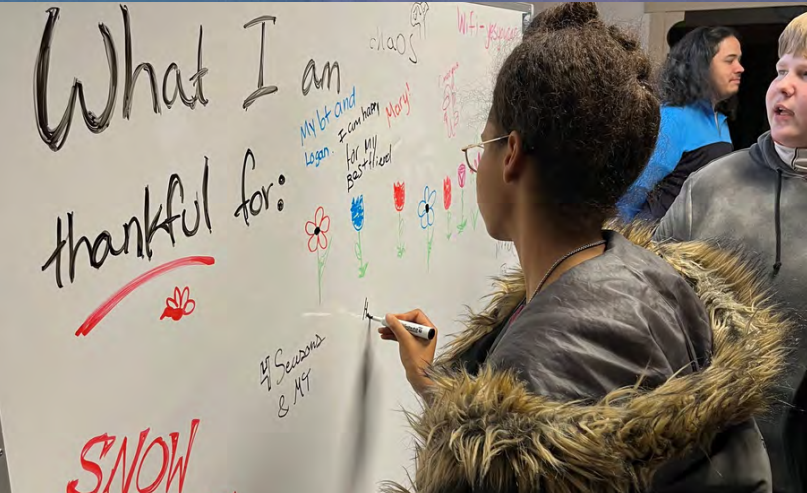 What I am
thankful for:
chaos
My bf and
Logan.
I am happy
for My
Best friend
Mary!
4 Seasons
& MT
SNOW